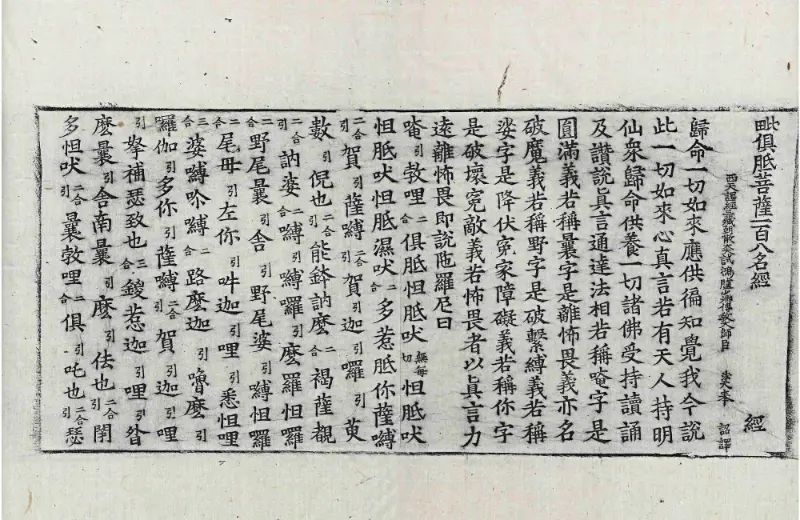 毗俱胝菩薩一百八名經 經
西天譯經三藏朝散大夫試鴻臚少卿傳教大師臣 法天奉 詔譯
歸命一切如來應供徧知覺我今說
此一切如來心真言若有天人持明
仙衆歸命供養一切諸佛受持讀誦
及讃說真言通達法相若稱唵字是
圓滿義若稱曩字是離怖畏義亦名
破魔義若稱野字是破繫縛義若稱
娑字是降伏寃家障礙義若稱你字
是破壞寃敵義若怖畏者以真言力
遠離怖畏即說陁羅尼曰
唵引敎哩二合俱胝怛吠無每切怛胝吠
怛胝吠怛胝濕吠二合多惹胝你薩嚩
二合引賀引薩嚩二合賀引迦引囉引萸
數引倪也二合能鉢訥麽二合褐薩覩
二合引訥婆二合嚩引嚩囉引麽羅怛羅
二合野尾曩引舍引野尾婆引嚩怛羅
二合尾毋引左你引吽迦引哩引悉怛哩
三合婆嚩吤嚩二合路麽迦引嚕麽引
羅伽引多你引薩嚩二合賀引迦引哩
引拏補瑟致也三合錽惹迦引哩引沓
麽曩引舍南曩引麽引佉也二合引閉
多怛吠二合引曩敎哩二合俱引吒也二合引瑟